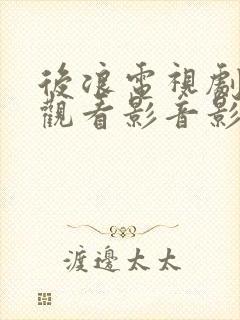 後浪電視劇
觀看影音影
渡邊太太